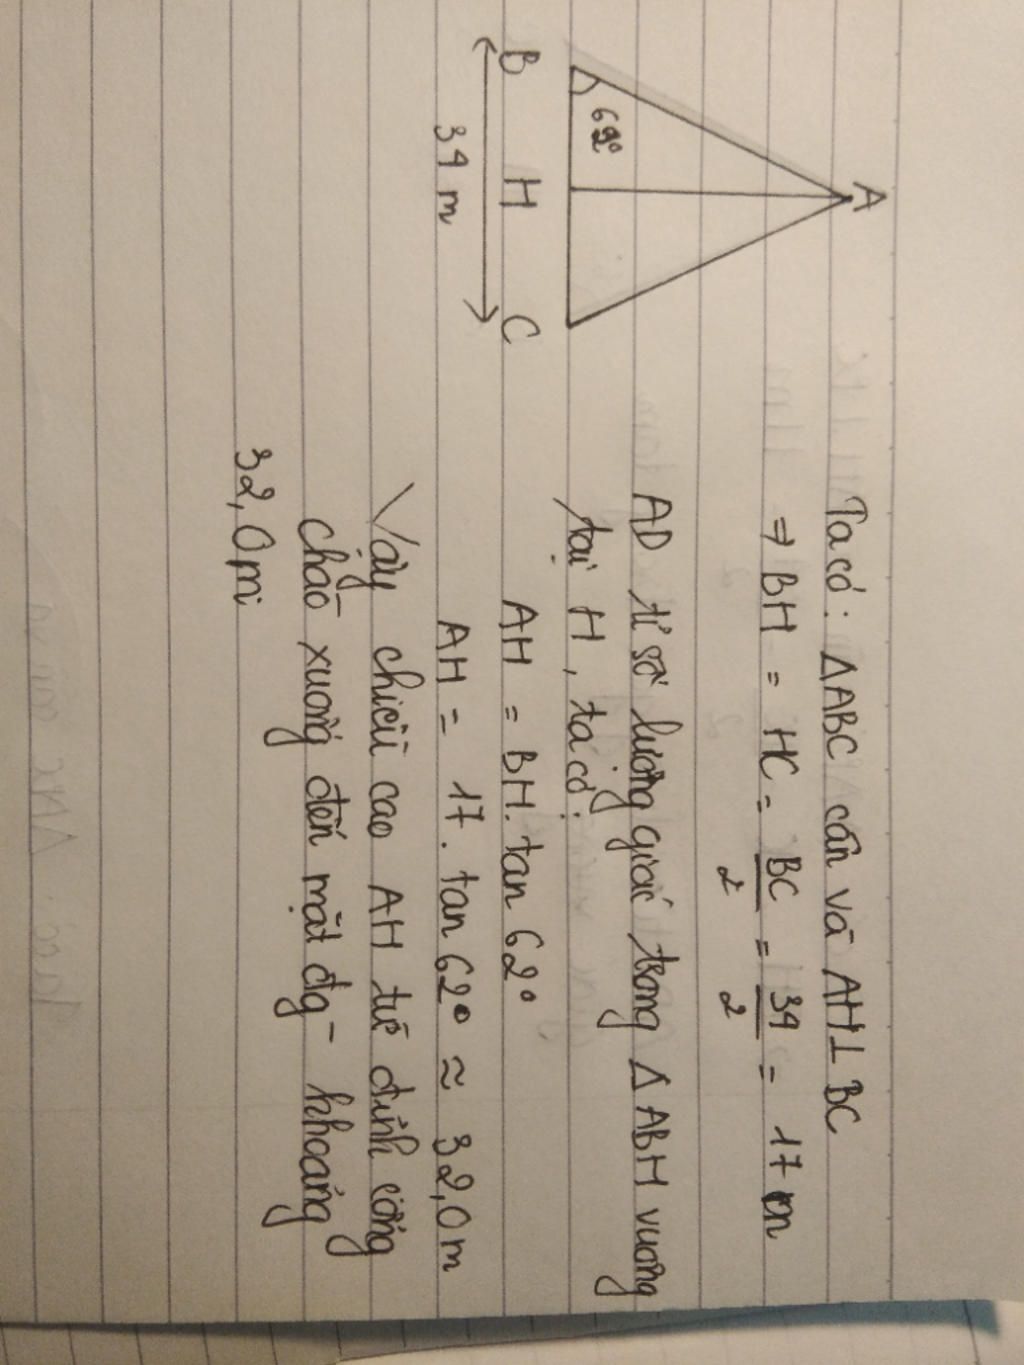 A
62°
B H C
34 m
Ta có: ΔABC cân và AH⊥BC
⇒ BH = HC = BC/2 = 34/2 = 17 m
AD tỉ số lượng giác trong Δ ABH vuông
tại H, ta có:
AH = BH. tan 62°
AH = 17. tan 62° ≈ 32,0 m
Vậy chiều cao AH từ đỉnh cổng
xuống đến mặt khoảng
32,0m